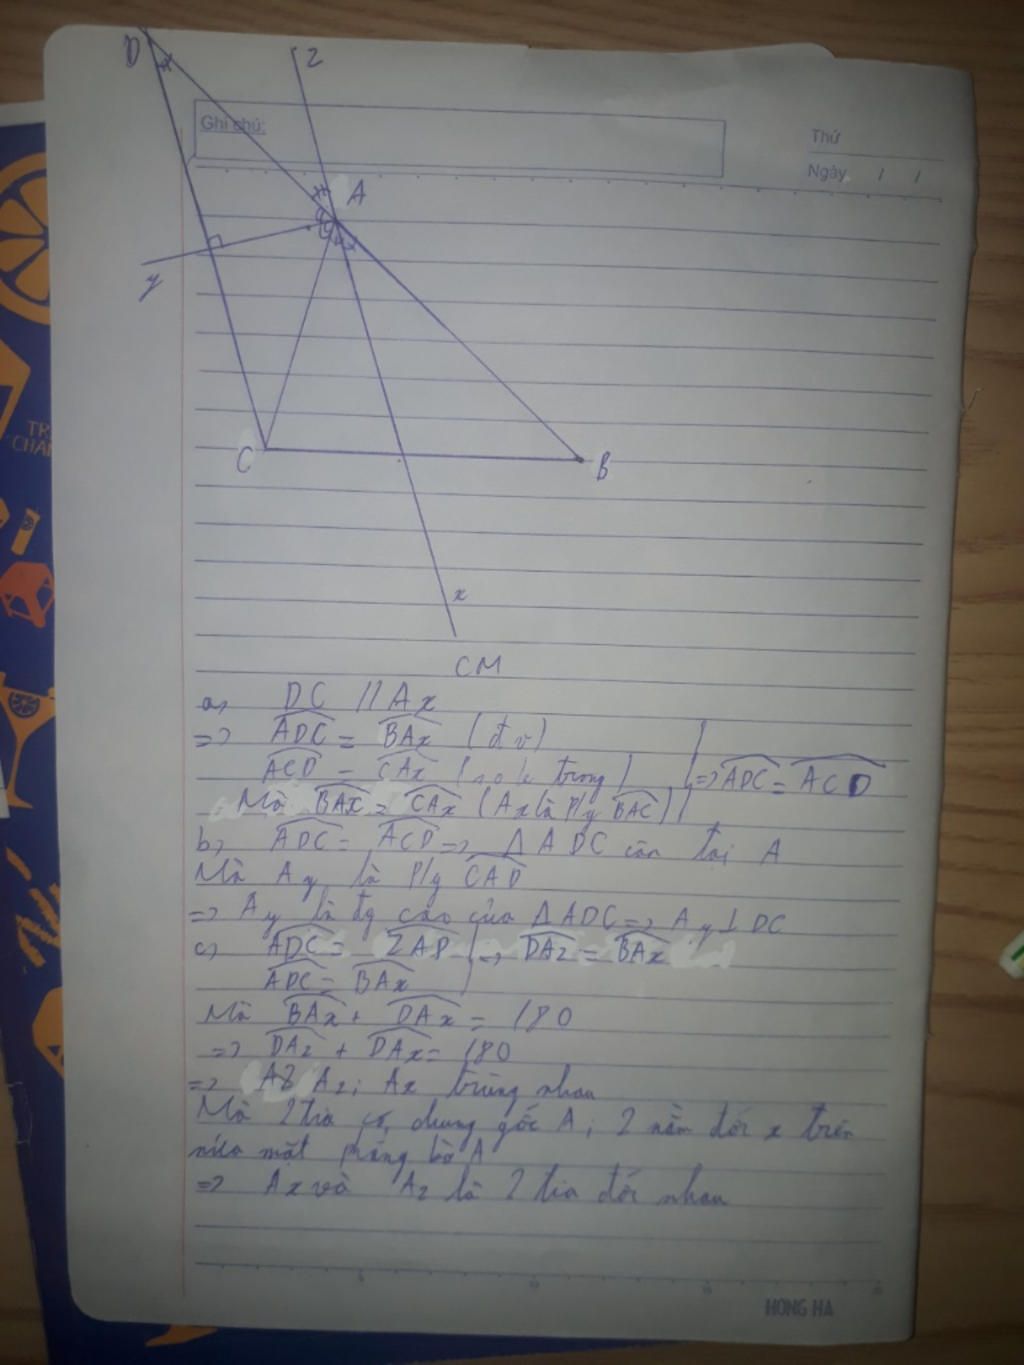 D
z
Ghi chú:
Thứ
Ngày / /
A
y
TR
CHAN
C
B
x
CM
a, DC // Ax
=> ADC = BAx (đ v)
ACD = CAx (so le trong) => ADC = ACD
Mà BAx = CAx (Ax là P/g BAC)
b, ADC = ACD => Δ ADC cân tại A
Mà Ay là P/g CAD
=> Ay là đg cao của Δ ADC => Ay ⊥ DC
c, ADC = ZAD => DAz = BAx
ADC = BAx
Mà BAx + DAx = 180
=> DAz + DAx = 180
=> Az; Ax trùng nhau
Mà 2 tia có chung gốc A; z nằm đối x trên
nửa mặt phẳng bờ A
=> Ax và Az là 2 tia đối nhau
5 10 15
HONG HA